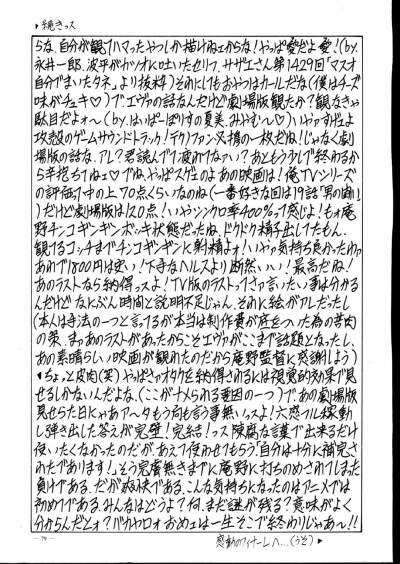 ▸続きっス
らな、自分が観てハマったやつしか描けねェからな!やっぱ愛だよ愛!(by.
永井一郎、波平がカツオに吐いたセリフ、サザエさん第1429回「マスオ
自分でまいたタネ」より抜粋)それにしてもおやつはカールだな(僕はチーズ
味がチェキ♡)でエヴァの話なんだけど劇場版観たか?観なきゃ
駄目だよォ〜(by.はいぱーぽりすの夏美、みやむ〜い♡)いやァすげェよ
攻殻のゲームサウンドトラック!テクノファン必携の一枚だね!じゃなく劇
場版の話な、アレ?君読んでて疲れてなァい?あともう少しで終わるから
辛抱ちてねェ♡でね、やっぱスゲェのよあの映画は!俺TVシリーズ
の評価って中の上、70点くらいなのね(一番好きな回は19話「男の戦い」
)だけど劇場版は120点!いやシンクロ率400%って感じよ!もォ庵
野チンコギンギンボッキ状態だったね、ドクドク精子出してたもん、
観てるコッチまでチンコギンギンに射精よォ!いやァ気持ち良かったわァ
あれで1800円は安い!下手なヘルスより断然いい!最高だね!
あのラストなら納得っスよ!TV版のラストってさァ言いたい事は分かる
んだけどなんぶん時間と説明不足じゃん、それに絵がアレだったし
(本人は手法の一つと言ってるが本当は制作費が底をついた為の苦肉
の策、まァあのラストがあったからこそエヴァがここまで話題となったし、
あの素晴らしい映画が観れたのだから庵野監督に感謝しよう)
・ちょっと皮肉(笑)やっぱさァオタクを納得されるには視覚的効果で見
せるしかないんだよな、(ここがナメられる要因の一つ)であの劇場版
見せらた日にゃあア〜タもう何も言う事無いっスよ!六感フル稼動
し弾き出した答えが完璧!完結!っス陳腐な言葉で出来るだけ
使いたくなかったのだが、あえて使わせてもらう「自分は十分に補完さ
れたであります!」そう完膚無きまでに庵野に打ちのめされてしまった
負けである、だが爽快である、こんな気持ちになったのはアニメでは
初めてである、みんなはどうよ?何、まだ謎が残る?意味がよく
分からんだとォ?バカヤロォおめェは一生そこで終わりじゃあ〜!!
感動のフィナーレへ…(うそ)▸